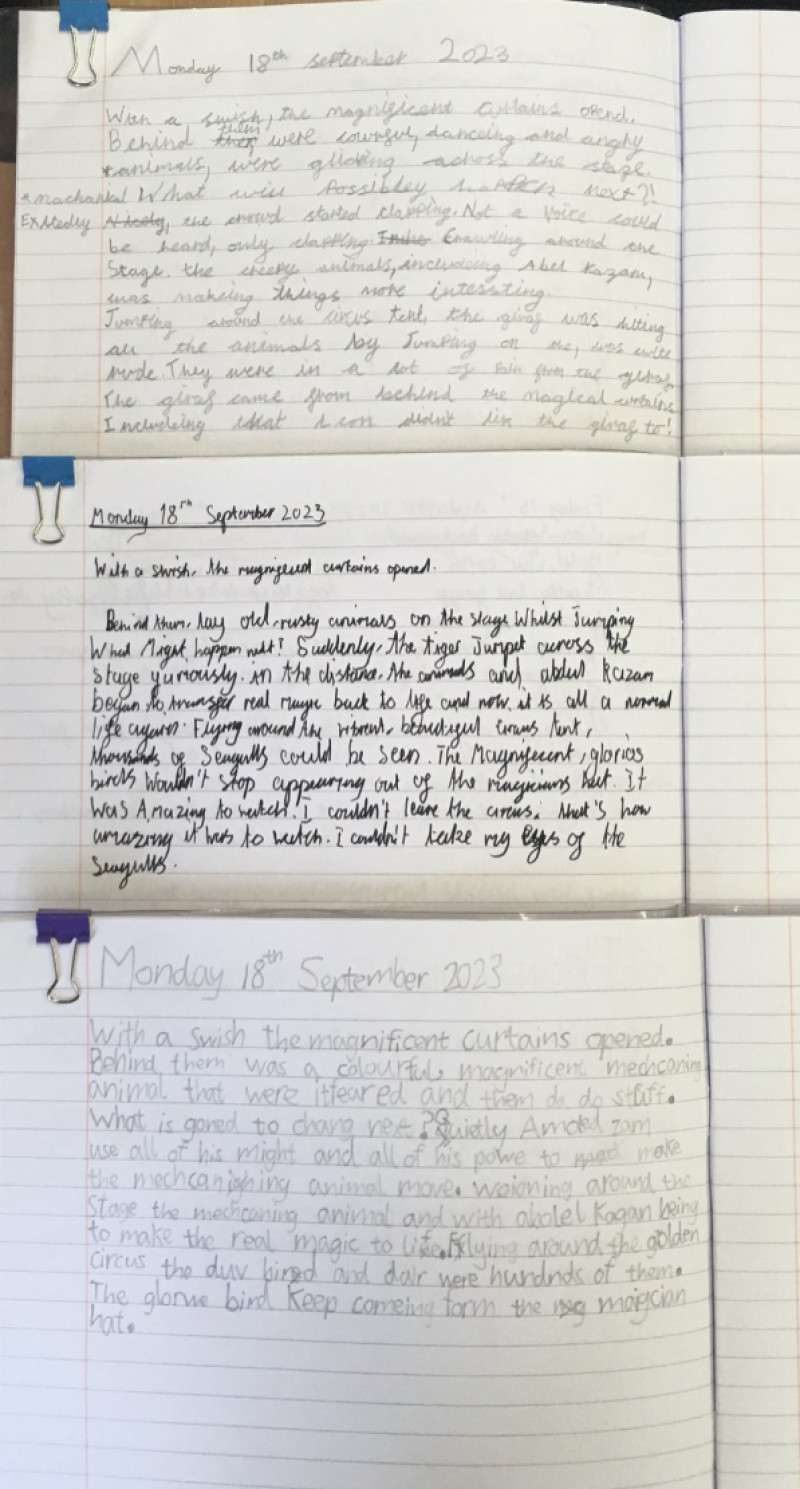 Monday 18th september 2023
With a swish, the magnificent curtains opend.
Behind them were colourful, danceing and angry
*animals, were gliding across the stage.
*machanical What will Possibley happen next?!
Extedly, the crowd started clapping. Not a voice could
be heard, only clapping. Crawling around the
Stage. the creepy animals, includeing Abel Kazam,
was makeing things more intessting.
Jumping around the circus tent, the giraf was hiting
all the animals by Jumping on the, was
rude. They were in a lot of pain from the giraf.
The giraf came from behind the magical curtains
Includeing that didn't the giraf to!
Monday 18th September 2023
With a swish, the magnificent curtains opened.
Behind them, lay old, rusty animals on the stage Whilst Jumping
What Might happen next? Suddenly, the tiger Jumpet across the
Stage furiously. in the distance, the animals and abdul Kazam
began to transfer real magic back to life and now, it is all a normal
life again. Flying around the vibrent, beautiful circus tent,
thousands of Seagulls could be seen. The Magnificent, glorias
birds wouldn't stop appearing out of the magicians hat. It
was Amazing to watch. I couldn't leave the circus. that's how
amazing it was to watch. I couldn't take my eyes of the
Seagulls.
Monday 18th September 2023
With a swish the magnificent curtains opened.
Behind them was a colourful, magnificent mechcaning
animal that were itfeared and them do stuff.
What is gored to chang next? Quietly Amded zam
use all of his might and all of his powe to make
the mechcanighing animal move. woioning around the
Stage the mechcaning animal and with abdel Kagan being
to make the real magic to life. Flying around the golden
circus the duv bired and dair were hundnds of them.
The glorue bird Keep comeing form the moigcian
hat.